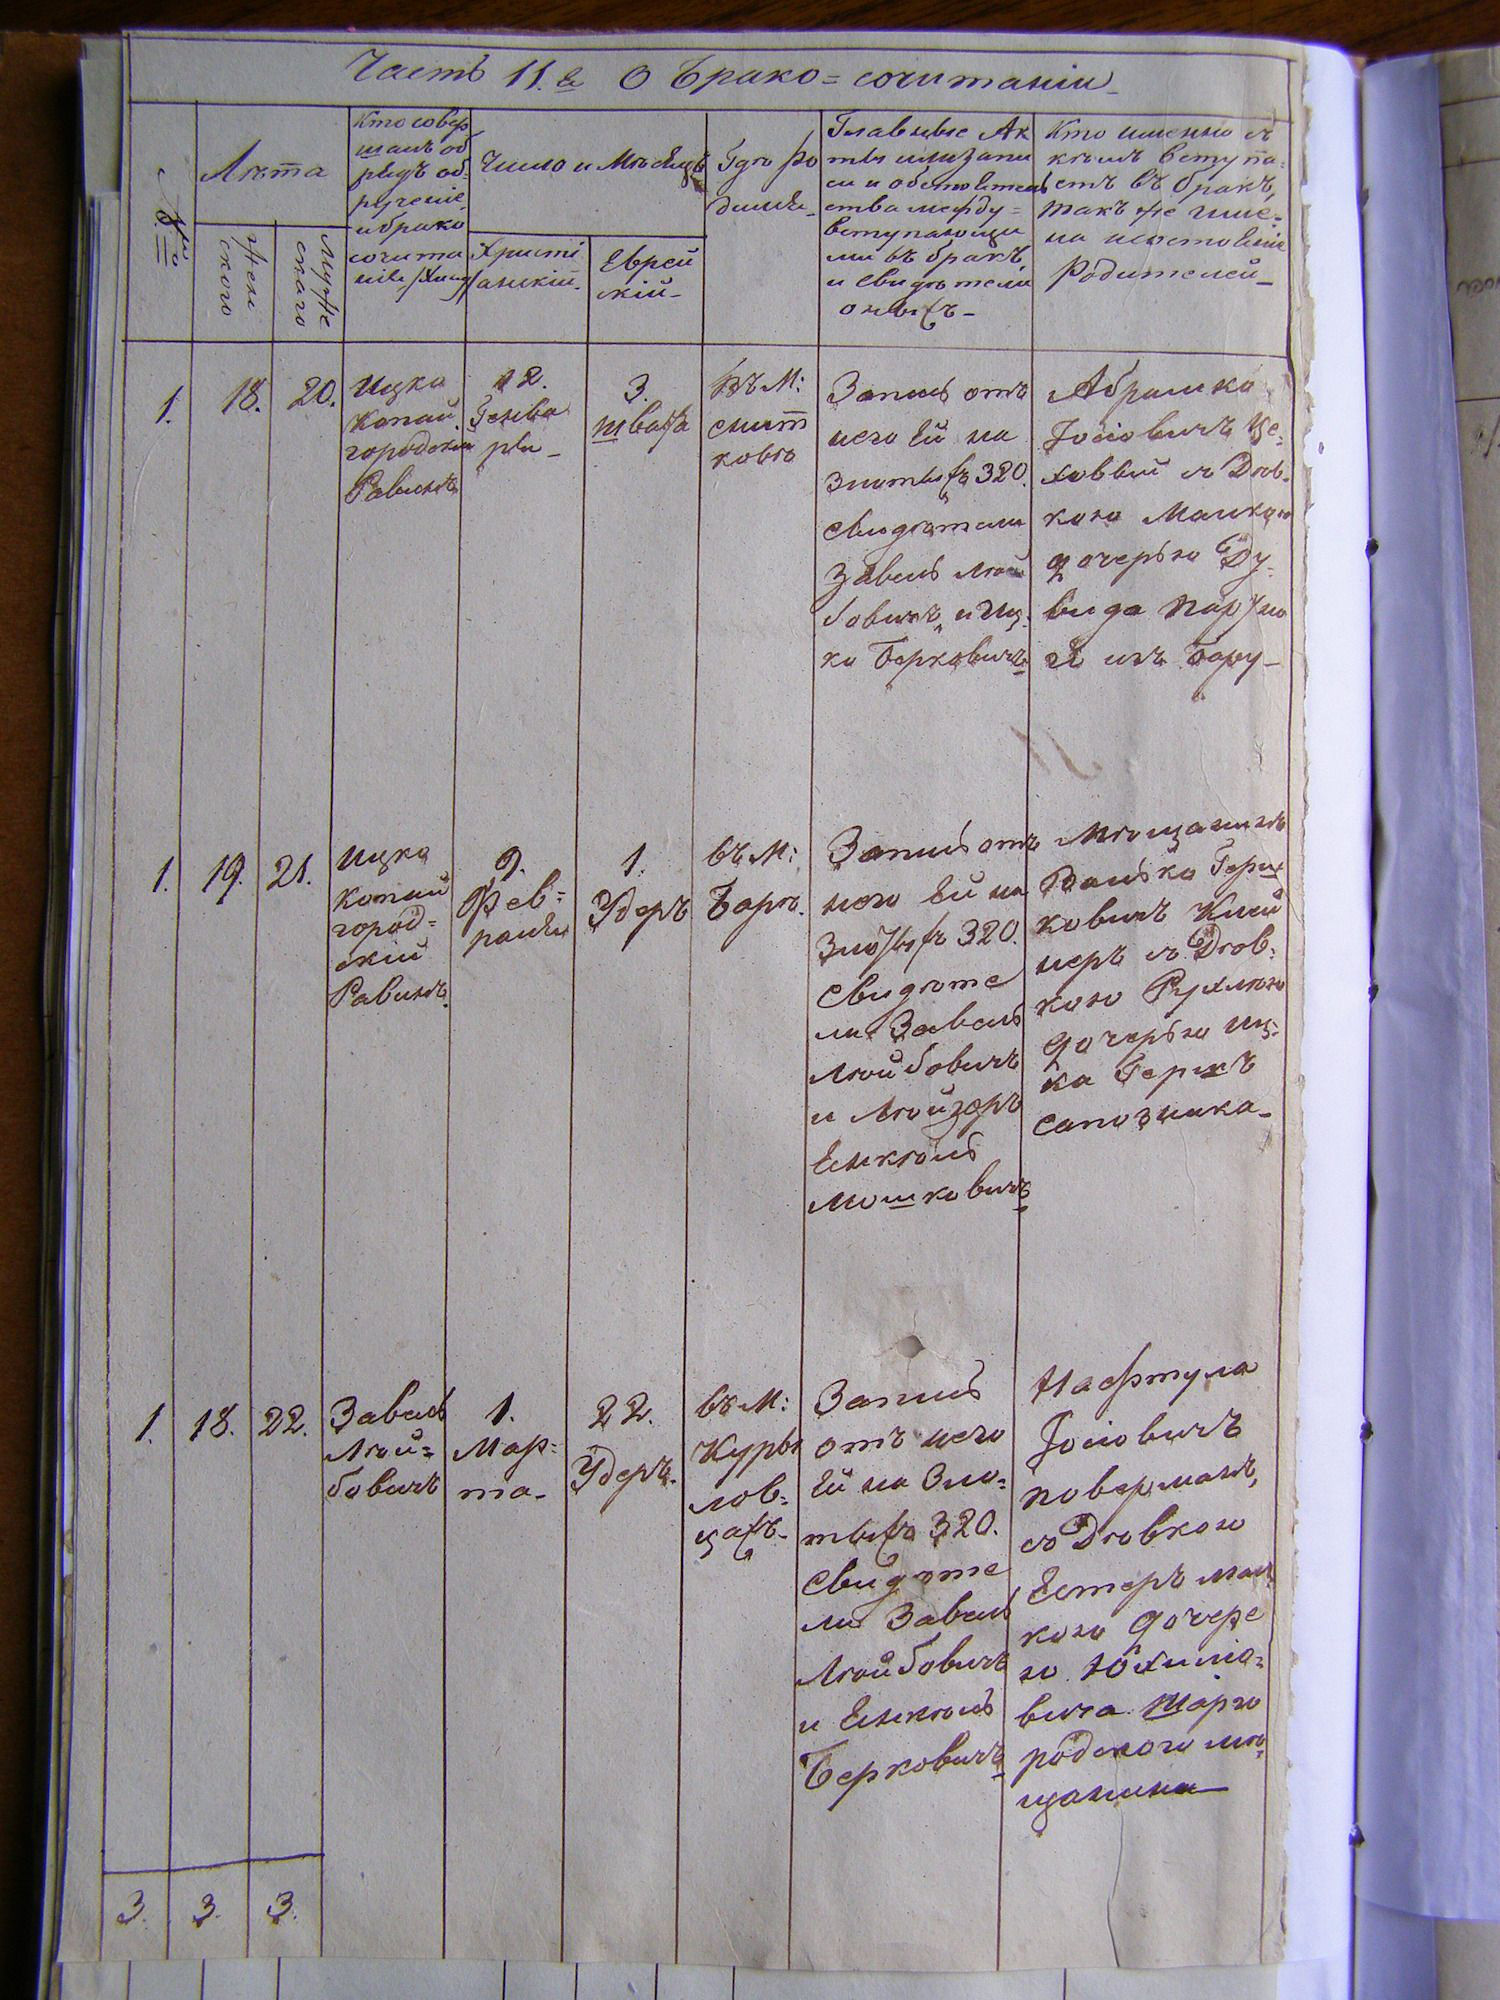 Часть II.я О Брако=сочитаніи
№
Лѣта
Женскаго
Мужескаго
Кто совер
шалъ об
рядъ об-
рученіе
и брако
сочита
Число и Мѣсяцъ
Христі
анскій.
Еврей
скій-
Гдѣ Ро
дился-
Главные Ак
ты или запи
си и обстоятель
ства между=
вступающи
ми въ бракъ,
и свидѣтели
оныхъ-
Кто именно съ
кѣмъ вступа=
етъ въ бракъ,
такъ же име=
на
Родителей-
1.
18.
20.
Ицко
Копай
городскій
Равинъ
12.
Генва
ря-
3.
Швата
въ М:
Снит
ковѣ
Запись отъ
него Ей на
Злотыхъ 320.
Свидѣтели
Завель Лей
бовичъ, и Иц.
ко Берковичъ
Абрамко
Іосіовичъ Це=
ховый съ Дѣв.
кою Малкою
дочерью Ду=
вида
изъ Бару-
1.
19.
21.
Ицко
Копай
город=
скій
Равинъ.
9.
Фев=
раля
1.
Удеръ
въ М:
Барѣ.
Запись отъ
него Ей на
Злотыхъ 320.
Свидѣте
ли Завель
Лейбовичъ
и Лейзеръ
Енкель
Мошковичъ
Мещанинъ
Волько Герш
ковичъ Клей
неръ съ Дѣв.
кою Рухлею
дочерью Иц=
ка Гершъ
Сапозника-
1.
18.
22.
Завель
Лей=
бовичъ
1.
Мар=
та-
22.
Удеръ.
въ М:
Куры
лов=
цахъ-
Запись
отъ него
Ей на Зло=
тыхъ 320.
Свидѣте
ли Завель
Лейбовичъ
и Енкель
Берковичъ
Нафтула
Іосіовичъ
Поверманъ,
съ Дѣвкою
Естеръ Мал
кою дочере
ю
вича Шарго
родского мѣ
щанина
3.
3.
3.